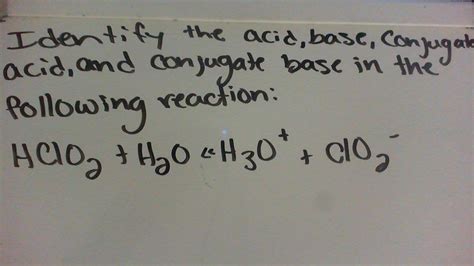 Identify the acid, base, conjugate
acid, and conjugate base in the
following reaction:
HClO₂ + H₂O « H₃O⁺ + ClO₂⁻